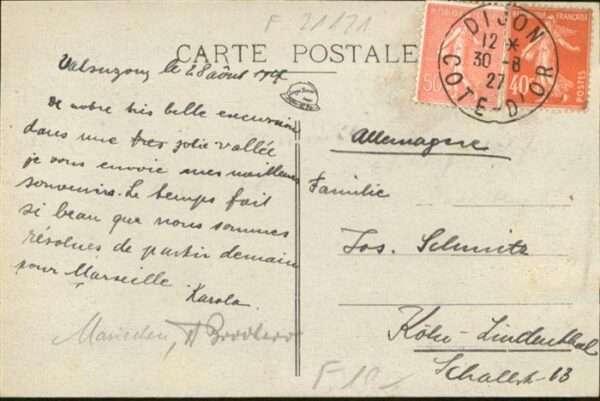 F 21121
CARTE POSTALE
RÉPUBLIQUE FRANÇAISE
50
40
POSTES
DIJON
12 *
30 - 8
27
COTE-D'OR
Valsuzon, le 28 août 1927
De notre très belle excursion
dans une très jolie vallée
je vous envoie mes meilleurs
souvenirs. Le temps fait
si beau que nous sommes
résolues de partir demain
pour Marseille.
Karola.
Allemagne
Familie
Jos. Schmitz
Köln-Lindenthal
F 10